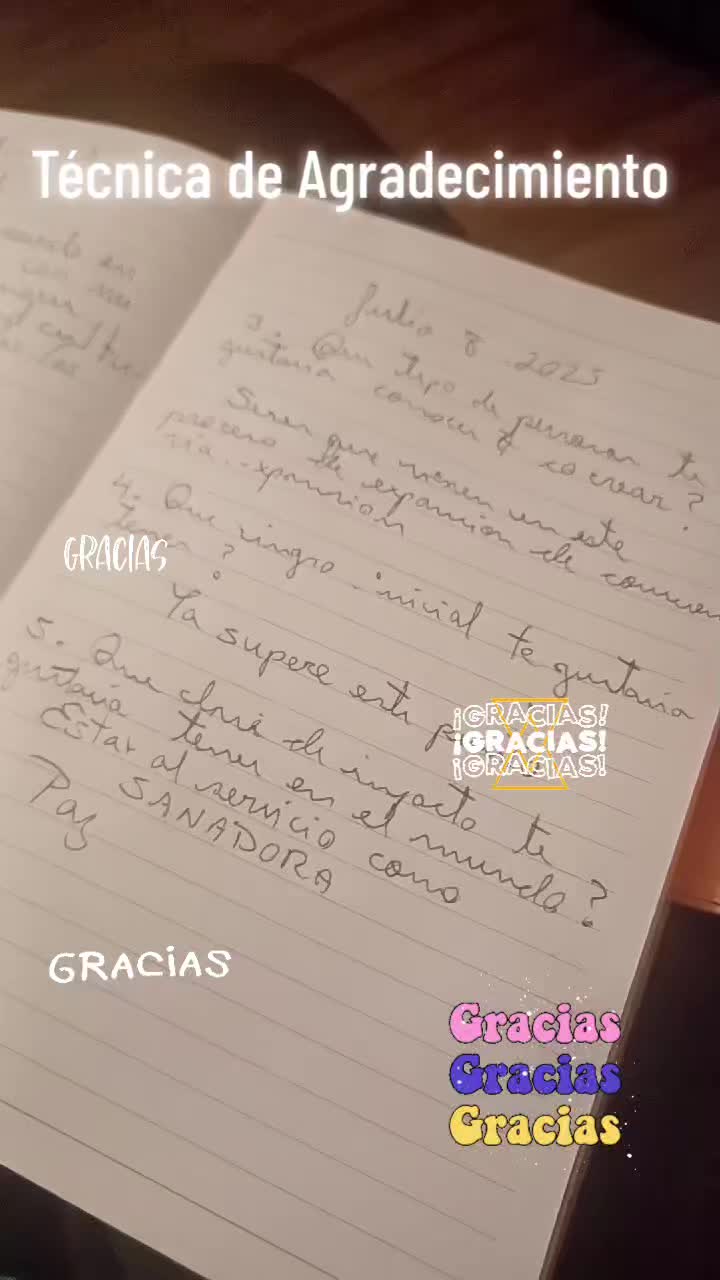 Técnica de Agradecimiento
Julio 8 2025
3. Que tipo de personas te
gustaria conocer y co crear?
Seres que vienen en este
proceso de expansion de concien
cia.. expansion
4. Que ingre inicial te gustaria
tener?
Ya supere este
5. Que clase de impacto te
gustaria tener en el mundo?
Estar al servicio como
SANADORA
Paz
GRACIAS
¡GRACIAS!
¡GRACIAS!
¡GRACIAS!
GRACIAS
Gracias
Gracias
Gracias